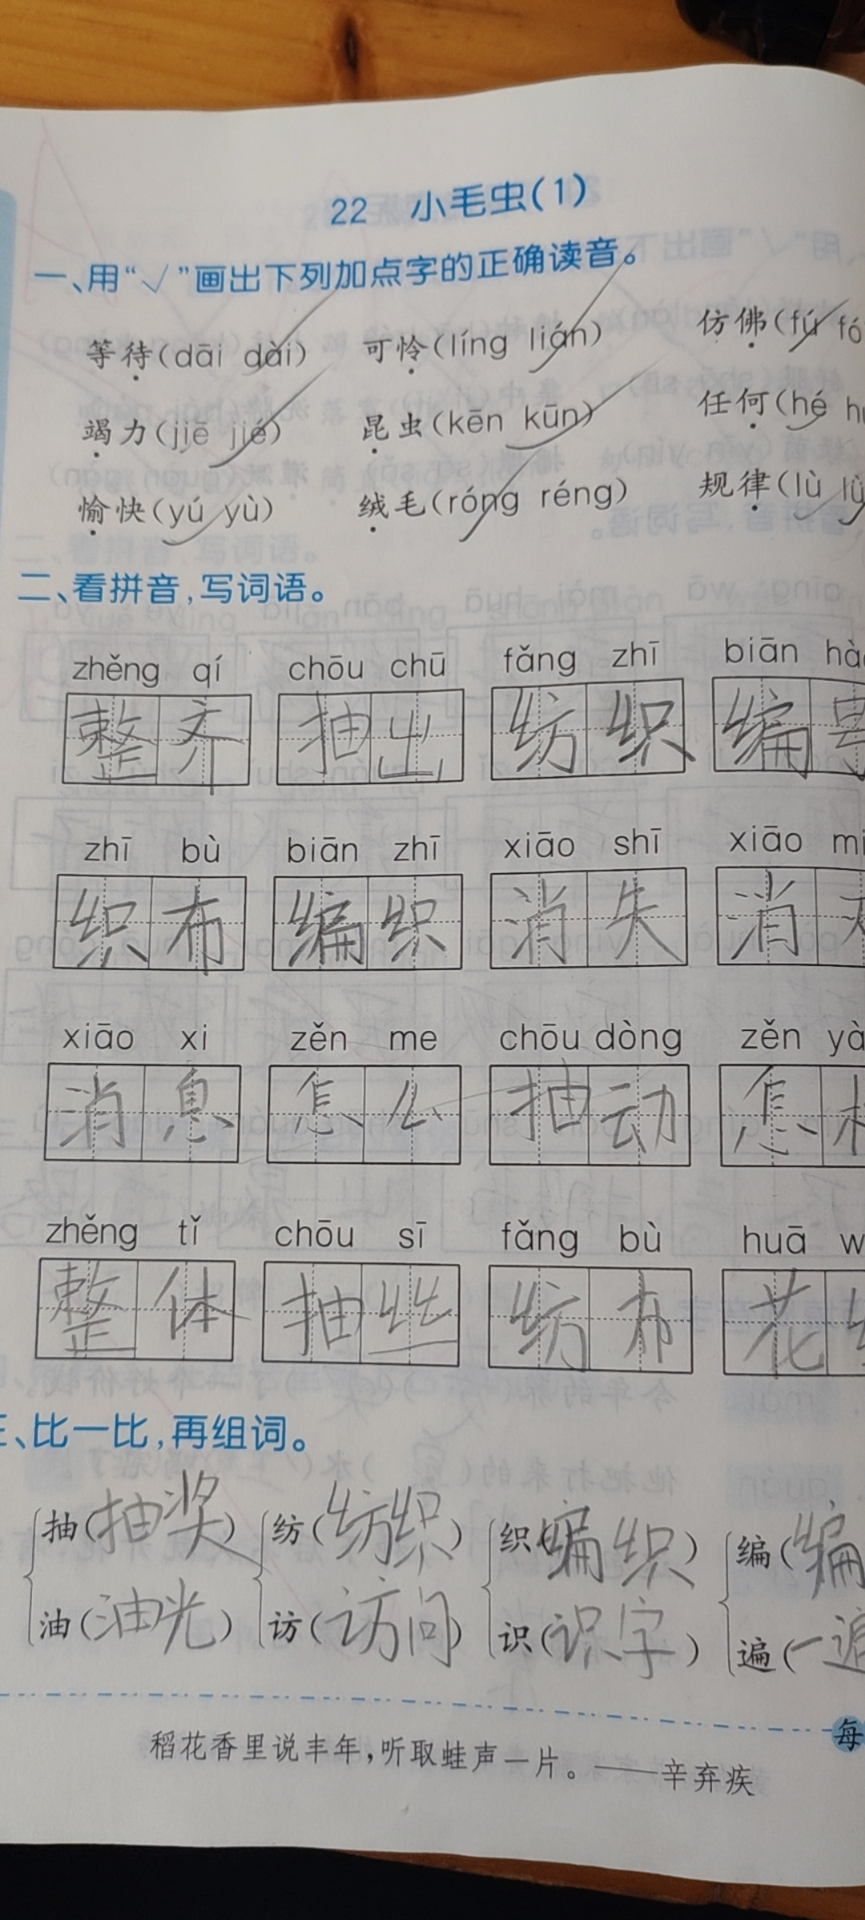 22 小毛虫(1)
一、用“√”画出下列加点字的正确读音。
等待(dāi dài) 可怜(líng lián) 仿佛(fú fó
竭力(jiē jié) 昆虫(kēn kūn) 任何(hé h
愉快(yú yù) 绒毛(róng réng) 规律(lù lǜ
二、看拼音,写词语。
zhěng qí chōu chū fǎng zhī biān hà
整齐 抽出 纺织 编号
zhī bù biān zhī xiāo shī xiāo mi
织布 编织 消失 消灭
xiāo xi zěn me chōu dòng zěn yà
消息 怎么 抽动 怎样
zhěng tǐ chōu sī fǎng bù huā w
整体 抽丝 纺布 花
三、比一比,再组词。
抽(抽奖) 纺(纺织) 织(编织) 编(编
油(油光) 访(访问) 识(识字) 遍(一遍
每
稻花香里说丰年,听取蛙声一片。——辛弃疾